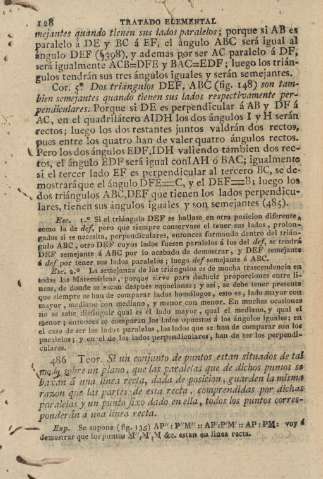 128 TRATADO ELEMENTAL
mejantes quando tienen sus lados paralelos; porque si AB es
paralelo á DE y BC á EF, el ángulo ABC será igual al
ángulo DEF (§398), y ademas por ser AC paralelo á DF,
será igualmente ACB=DFE y BAC=EDF; luego los trián-
gulos tendrán sus tres ángulos iguales y serán semejantes.
Cor. 5º Dos triángulos DEF, ABC (fig. 148) son tam-
bien semejantes quando tienen sus lados respectivamente per-
pendiculares. Porque si DE es perpendicular á AB y DF á
AC, en el quadrilátero AIDH los dos ángulos I y H serán
rectos; luego los dos restantes juntos valdrán dos rectos,
pues entre los quatro han de valer quatro ángulos rectos.
Pero los dos ángulos EDF, IDH valiendo tambien dos rec-
tos, el ángulo EDF será igual con IAH ó BAC; igualmente
si el tercer lado EF es perpendicular al tercero BC, se de-
mostrará que el ángulo DFE=C, y el DEF=B; luego los
dos triángulos ABC, DEF que tienen los lados perpendicu-
lares, tienen sus ángulos iguales y son semejantes (485).
Esc. 1.º Si el triángulo DEF se hallase en otra posicion diferente,
como la de def, pero que siempre conservase el tener sus lados, prolon-
gados si es necesario, perpendiculares, entonces formando dentro del trián-
gulo ABC, otro DEF cuyos lados fuesen paralelos á los del def, se tendrá
DEF semejante á ABC por lo acabado de demostrar, y DEF semejante
á def por tener sus lados paralelos; luego def semejante á ABC.
Esc. 2.º La semejanza de los triángulos es de mucha trascendencia en
todas las Matemáticas, porque sirve para deducir proporciones entre lí-
neas, de donde se sacan despues equaciones; y así, se debe tener presente
que siempre se han de comparar lados homólogos, esto es, lado mayor con
mayor, mediano con mediano, y menor con menor. En muchas ocasiones
no se sabe distinguir qual es el lado mayor, qual el mediano, y qual el
menor; entonces se comparan los lados opuestos á los ángulos iguales; en
el caso de ser los lados paralelos, los lados que se han de comparar son los
paralelos; y en el de los lados perpendiculares, han de ser los perpendi-
culares.
486 Teor. Si un conjunto de puntos estan situados de tal
modo sobre un plano, que las paralelas que de dichos puntos se
baxan á una línea recta, dada de posicion, guarden la misma
razon que las partes de esta recta, comprendidas por dichas
paralelas y un punto fixo dado en ella, todos los puntos corres-
ponderán á una línea recta.
Exp. Se supone (fig. 135) AP'':P''M''::AP':P'M'::AP:PM: voy á
demostrar que los puntos M'', M', M &c. estan en línea recta.